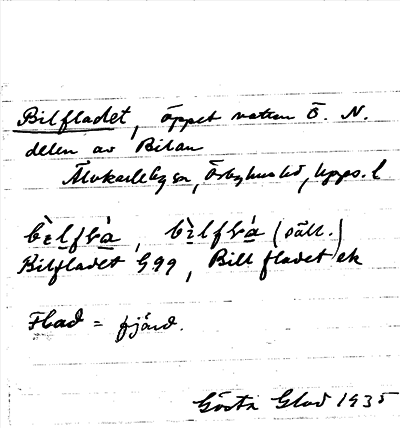 Bilfladet, öppet vatten Ö. N.
delen av Bilan
Älvkarleby sn, Örbyhus hd, Upps. l
bìlfla, bìlfla (sällt.)
Bilfladet G99, Bill fladet ek
Flad = fjärd.
Gösta Glad 1935